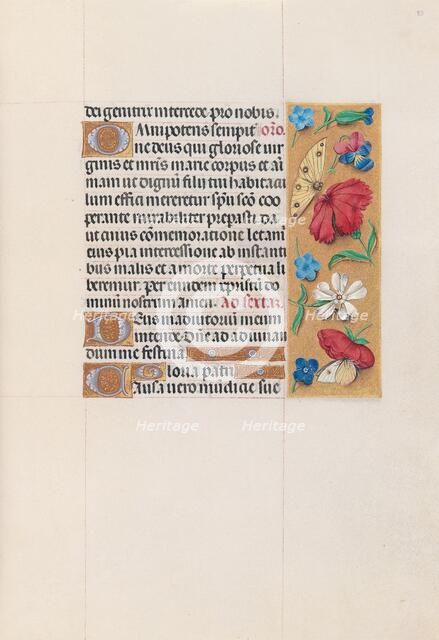 dei genitrix intercede pro nobis.
Omnipotens sempit oro.
ne deus qui gloriose vir
ginis et mr̄is marie corpus et ani
mam ut dignū filii tui habitacu
lum effici mereretur spū scō coo
perante mirabiliter prepasti da
ut cuius cōmemoratione letam̄
eius pia intercessione ab instanti
bus malis et a morte perpetua li
beremur. per eundem xpistū do
minū nostrum amen. Ad sextā R.
Deus in adiutoriū meum
intende. Dn̄e ad adiuvan
dum me festina
Gloria patri
heritage
Heritage
Heritage
Heritage
Heritage